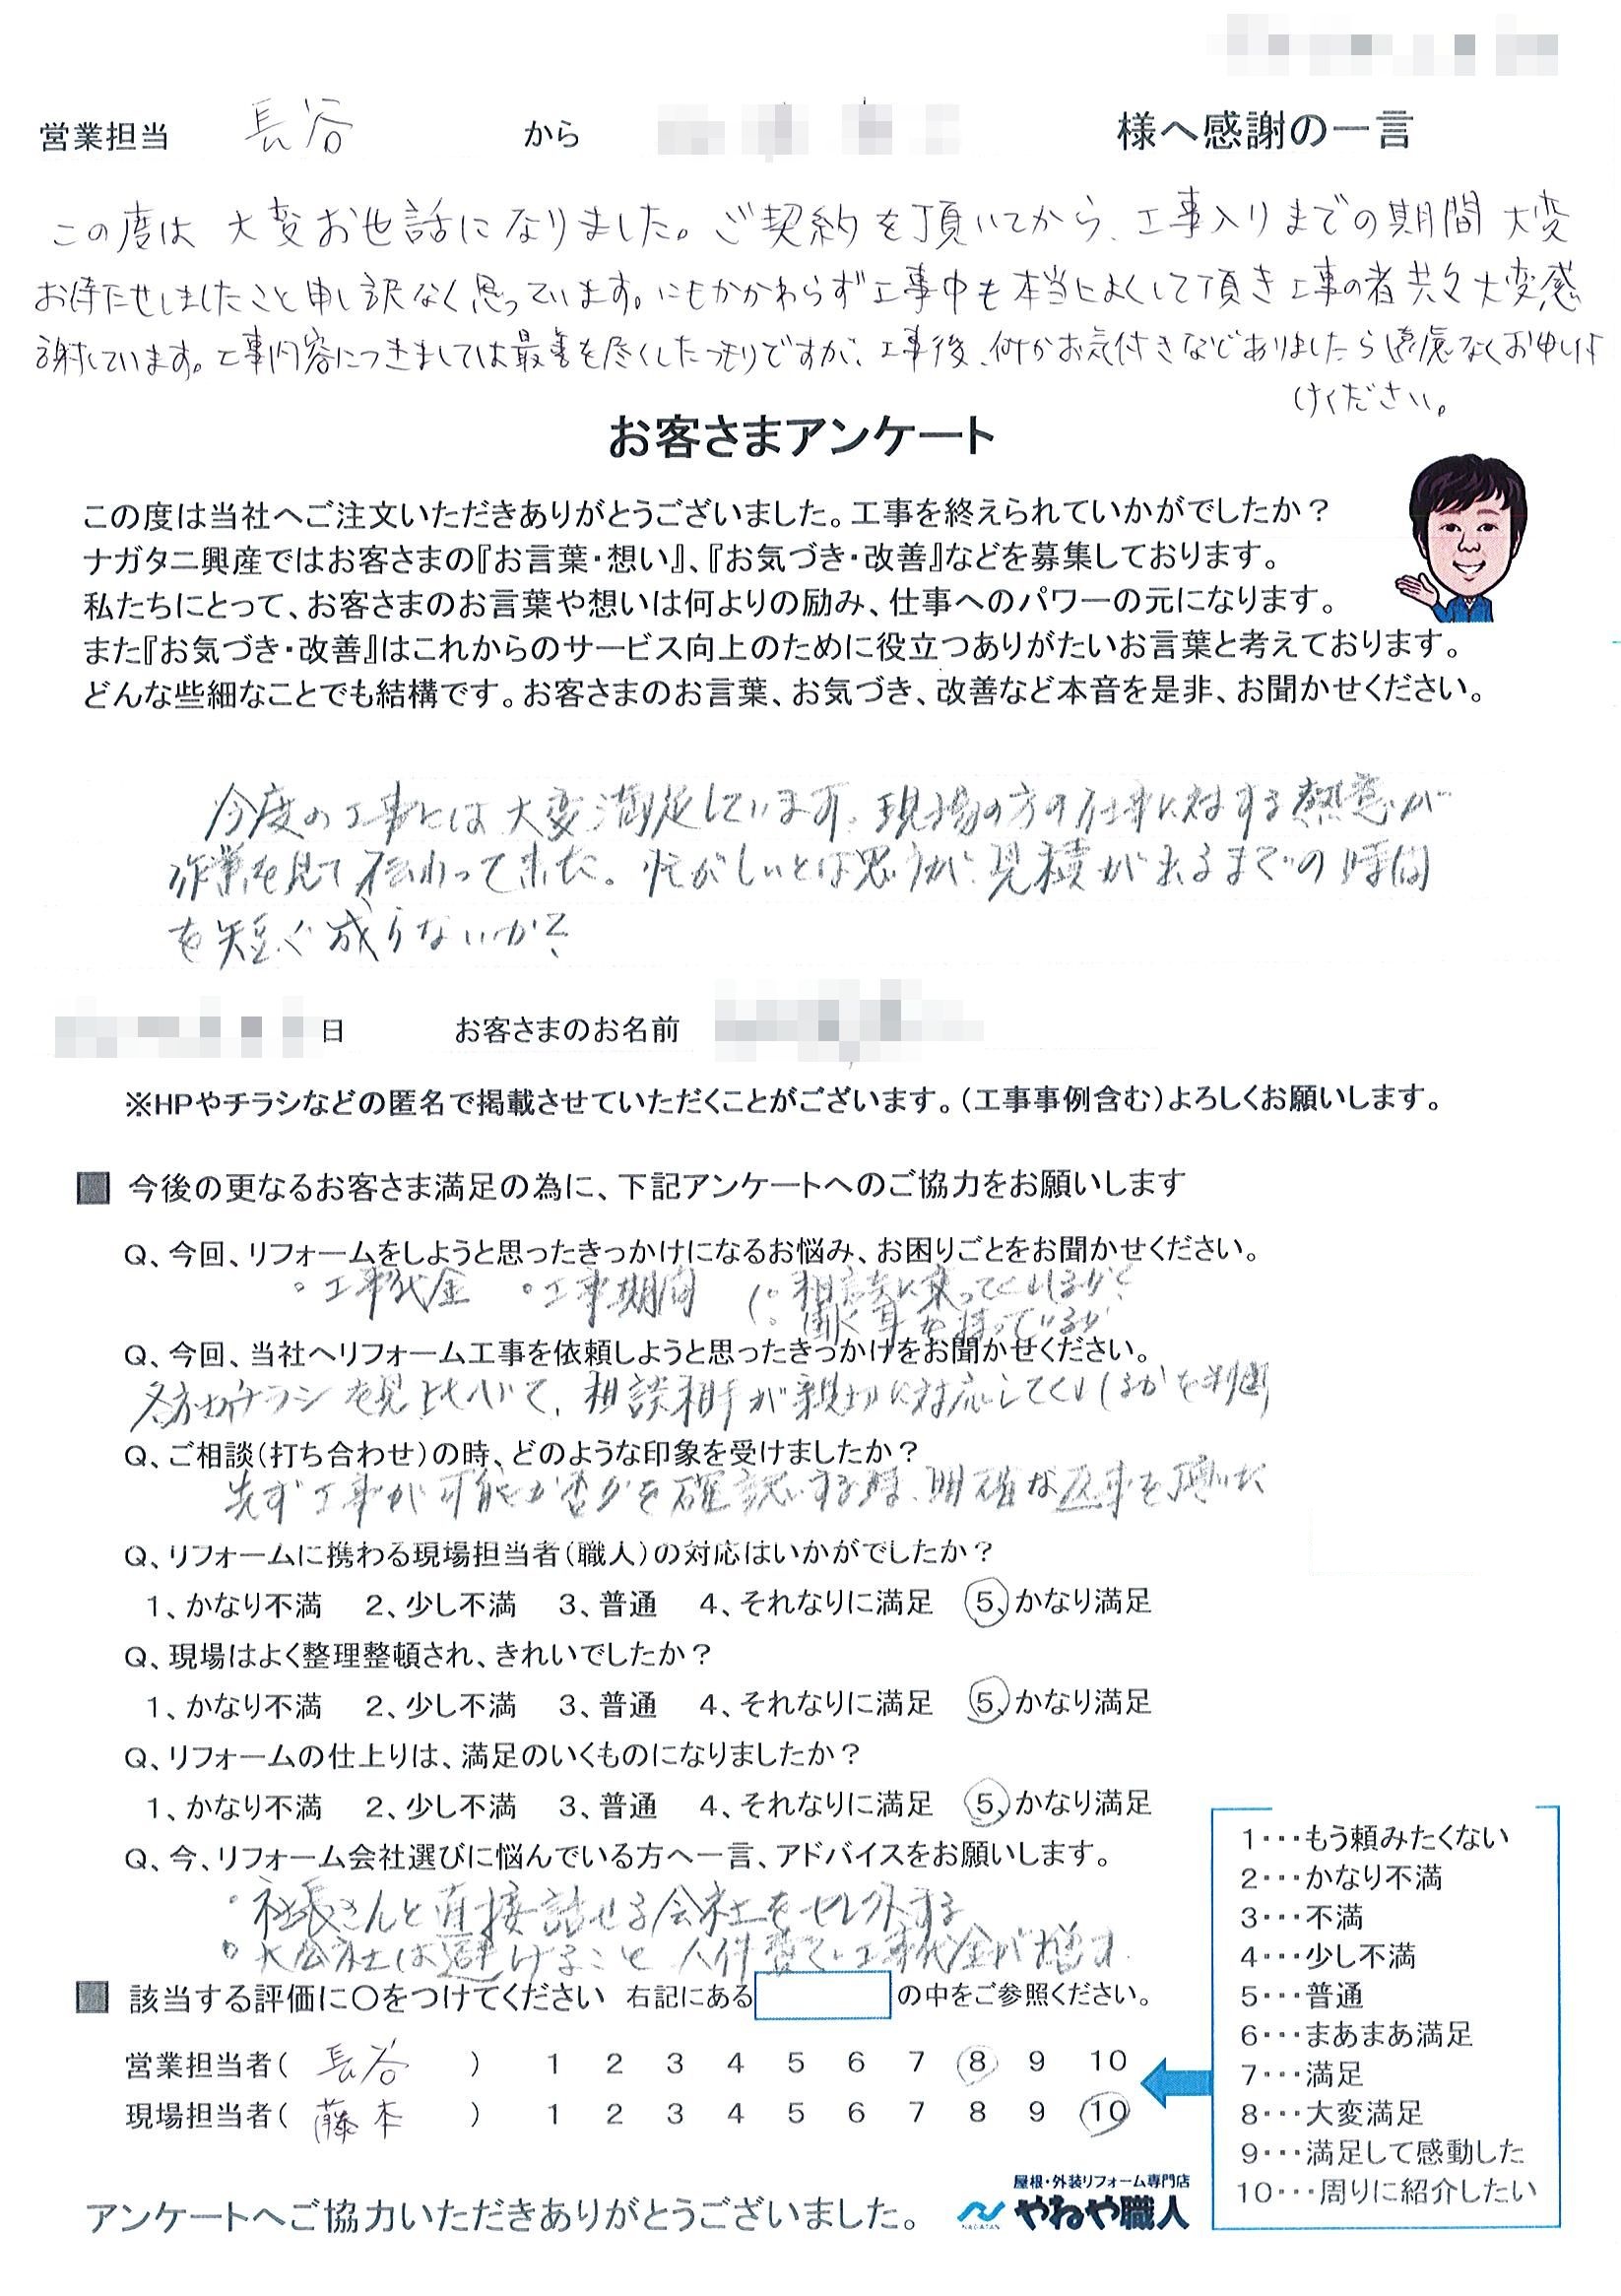 営業担当 長谷 から 様へ感謝の一言
この度は 大変お世話になりました。ご契約を頂いてから、工事入りまでの期間 大変
お待たせしましたこと申し訳なく思っています。にもかかわらず工事中も本当によくして頂き工事の者共々大変感
謝しています。工事内容につきましては最善を尽くしたつもりですが、工事後、何かお気付きなどありましたら遠慮なくお申し付
けください。
お客さまアンケート
この度は当社へご注文いただきありがとうございました。工事を終えられていかがでしたか？
ナガタニ興産ではお客さまの『お言葉・想い』、『お気づき・改善』などを募集しております。
私たちにとって、お客さまのお言葉や想いは何よりの励み、仕事へのパワーの元になります。
また『お気づき・改善』はこれからのサービス向上のために役立つありがたいお言葉と考えております。
どんな些細なことでも結構です。お客さまのお言葉、お気づき、改善など本音を是非、お聞かせください。
今度の工事には大変満足しています。現場の方の仕事に対する熱意が
作業を見て伝わって来た。忙がしいとは思うが、見積が出るまでの時間
を短く成らないか？
日 お客さまのお名前
※HPやチラシなどの匿名で掲載させていただくことがございます。（工事事例含む）よろしくお願いします。
■ 今後の更なるお客さま満足の為に、下記アンケートへのご協力をお願いします
Q、今回、リフォームをしようと思ったきっかけになるお悩み、お困りごとをお聞かせください。
。工事代金 。工事期間 (。相談に乗ってくれるか？
。聞く耳を持っているか
Q、今回、当社へリフォーム工事を依頼しようと思ったきっかけをお聞かせください。
チラシを見比べて、相談相手が親切に対応してくれるかを判断
Q、ご相談（打ち合わせ）の時、どのような印象を受けましたか？
先ず工事が可能か否かを確認する時、明確な返事を頂いた
Q、リフォームに携わる現場担当者（職人）の対応はいかがでしたか？
1、かなり不満 2、少し不満 3、普通 4、それなりに満足 5、かなり満足
Q、現場はよく整理整頓され、きれいでしたか？
1、かなり不満 2、少し不満 3、普通 4、それなりに満足 5、かなり満足
Q、リフォームの仕上りは、満足のいくものになりましたか？
1、かなり不満 2、少し不満 3、普通 4、それなりに満足 5、かなり満足
Q、今、リフォーム会社選びに悩んでいる方へ一言、アドバイスをお願いします。
・社長さんと直接話せる会社をセレクトする
。大会社は避けること 人件費で工事代金が増す。
■ 該当する評価に〇をつけてください 右記にある の中をご参照ください。
営業担当者（ 長谷 ） 1 2 3 4 5 6 7 8 9 10
現場担当者（ 藤本 ） 1 2 3 4 5 6 7 8 9 10
1・・・もう頼みたくない
2・・・かなり不満
3・・・不満
4・・・少し不満
5・・・普通
6・・・まあまあ満足
7・・・満足
8・・・大変満足
9・・・満足して感動した
10・・・周りに紹介したい
アンケートへご協力いただきありがとうございました。
NAGATANI
屋根・外装リフォーム専門店
やねや職人